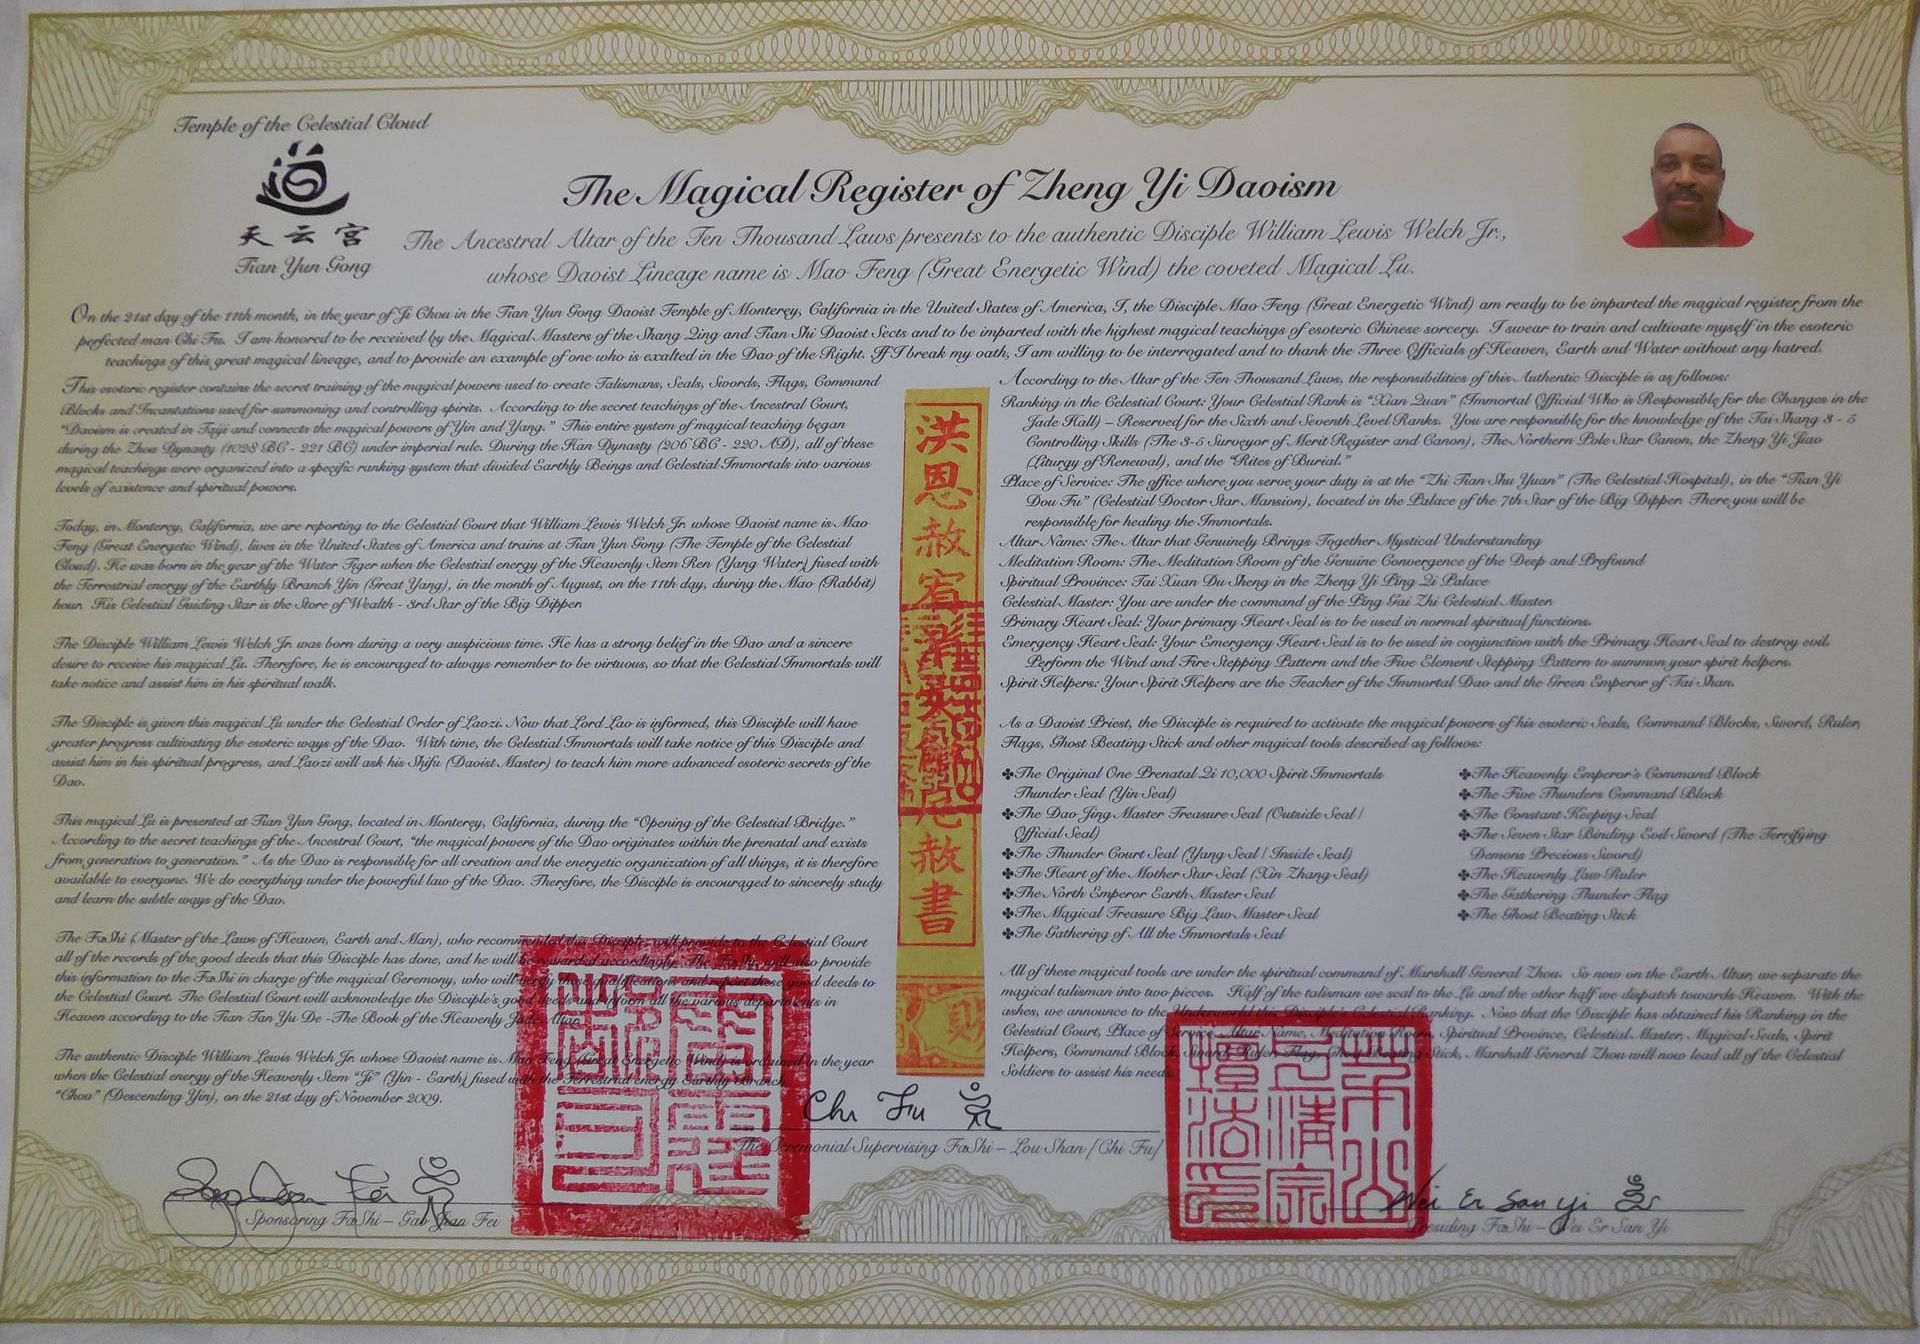 Temple of the Celestial Cloud
天云宮
Tian Yun Gong
The Magical Register of Zheng Yi Daoism
The Ancestral Altar of the Ten Thousand Laws presents to the authentic Disciple William Lewis Welch Jr.,
whose Daoist Lineage name is Mao Feng (Great Energetic Wind) the coveted Magical Lu.
On the 21st day of the 11th month, in the year of Ji Chou in the Tian Yun Gong Daoist Temple of Monterey, California in the United States of America, I, the Disciple Mao Feng (Great Energetic Wind) am ready to be imparted the magical register from the
perfected man Chi Fu. I am honored to be received by the Magical Masters of the Shang Qing and Tian Shi Daoist Sects and to be imparted with the highest magical teachings of esoteric Chinese sorcery. I swear to train and cultivate myself in the esoteric
teachings of this great magical lineage, and to provide an example of one who is exalted in the Dao of the Right. If I break my oath, I am willing to be interrogated and to thank the Three Officials of Heaven, Earth and Water without any hatred.
This esoteric register contains the secret training of the magical powers used to create Talismans, Seals, Swords, Flags, Command
Blocks and Incantations used for summoning and controlling spirits. According to the secret teachings of the Ancestral Court,
"Daoism is created in Taiji and connects the magical powers of Yin and Yang." This entire system of magical teaching began
during the Zhou Dynasty (1028 BC - 221 BC) under imperial rule. During the Han Dynasty (206 BC - 220 AD), all of these
magical teachings were organized into a specific ranking system that divided Earthly Beings and Celestial Immortals into various
levels of existence and spiritual powers.
Today, in Monterey, California, we are reporting to the Celestial Court that William Lewis Welch Jr. whose Daoist name is Mao
Feng (Great Energetic Wind), lives in the United States of America and trains at Tian Yun Gong (The Temple of the Celestial
Cloud). He was born in the year of the Water Tiger when the Celestial energy of the Heavenly Stem Ren (Yang Water) fused with
the Terrestrial energy of the Earthly Branch Yin (Great Yang), in the month of August, on the 11th day, during the Mao (Rabbit)
hour. His Celestial Guiding Star is the Store of Wealth - 3rd Star of the Big Dipper.
The Disciple William Lewis Welch Jr. was born during a very auspicious time. He has a strong belief in the Dao and a sincere
desire to receive his magical Lu. Therefore, he is encouraged to always remember to be virtuous, so that the Celestial Immortals will
take notice and assist him in his spiritual walk.
The Disciple is given this magical Lu under the Celestial Order of Laozi. Now that Lord Lao is informed, this Disciple will have
greater progress cultivating the esoteric ways of the Dao. With time, the Celestial Immortals will take notice of this Disciple and
assist him in his spiritual progress, and Laozi will ask his Shifu (Daoist Master) to teach him more advanced esoteric secrets of the
Dao.
This magical Lu is presented at Tian Yun Gong, located in Monterey, California, during the "Opening of the Celestial Bridge."
According to the secret teachings of the Ancestral Court, "the magical powers of the Dao originates within the prenatal and exists
from generation to generation." As the Dao is responsible for all creation and the energetic organization of all things, it is therefore
available to everyone. We do everything under the powerful law of the Dao. Therefore, the Disciple is encouraged to sincerely study
and learn the subtle ways of the Dao.
The FaShi (Master of the Laws of Heaven, Earth and Man), who recommended this Disciple, will provide to the Celestial Court
all of the records of the good deeds that this Disciple has done, and he will be rewarded accordingly. The FaShi, will also provide
this information to the FaShi in charge of the magical Ceremony, who will verify those qualifications and report these good deeds to
the Celestial Court. The Celestial Court will acknowledge the Disciple's good deeds and inform all the various departments in
Heaven according to the Tian Tan Yu De -The Book of the Heavenly Jade Altar.
The authentic Disciple William Lewis Welch Jr. whose Daoist name is Mao Feng (Great Energetic Wind) is ordained in the year
when the Celestial energy of the Heavenly Stem "Ji" (Yin - Earth) fused with the Terrestrial energy Earthly Branch
"Chou" (Descending Yin), on the 21st day of November 2009.
洪恩赦宥
赦書
According to the Altar of the Ten Thousand Laws, the responsibilities of this Authentic Disciple is as follows:
Ranking in the Celestial Court: Your Celestial Rank is "Xian Quan" (Immortal Official Who is Responsible for the Changes in the
Jade Hall) – Reserved for the Sixth and Seventh Level Ranks. You are responsible for the knowledge of the Tai Shang 3 - 5
Controlling Skills (The 3-5 Surveyor of Merit Register and Canon), The Northern Pole Star Canon, the Zheng Yi Jiao
(Liturgy of Renewal), and the "Rites of Burial."
Place of Service: The office where you serve your duty is at the "Zhi Tian Shu Yuan" (The Celestial Hospital), in the "Tian Yi
Dou Fu" (Celestial Doctor Star Mansion), located in the Palace of the 7th Star of the Big Dipper. There you will be
responsible for healing the Immortals.
Altar Name: The Altar that Genuinely Brings Together Mystical Understanding
Meditation Room: The Meditation Room of the Genuine Convergence of the Deep and Profound
Spiritual Province: Tai Xuan Du Sheng in the Zheng Yi Ping Qi Palace
Celestial Master: You are under the command of the Ping Gai Zhi Celestial Master
Primary Heart Seal: Your primary Heart Seal is to be used in normal spiritual functions.
Emergency Heart Seal: Your Emergency Heart Seal is to be used in conjunction with the Primary Heart Seal to destroy evil.
Perform the Wind and Fire Stepping Pattern and the Five Element Stepping Pattern to summon your spirit helpers.
Spirit Helpers: Your Spirit Helpers are the Teacher of the Immortal Dao and the Green Emperor of Tai Shan.
As a Daoist Priest, the Disciple is required to activate the magical powers of his esoteric Seals, Command Blocks, Sword, Ruler,
Flags, Ghost Beating Stick and other magical tools described as follows:
✤The Original One Prenatal Qi 10,000 Spirit Immortals
Thunder Seal (Yin Seal)
✤The Dao Jing Master Treasure Seal (Outside Seal /
Official Seal)
✤The Thunder Court Seal (Yang Seal / Inside Seal)
✤The Heart of the Mother Star Seal (Xin Zhang Seal)
✤The North Emperor Earth Master Seal
✤The Magical Treasure Big Law Master Seal
✤The Gathering of All the Immortals Seal
✤The Heavenly Emperor's Command Block
✤The Five Thunders Command Block
✤The Constant Keeping Seal
✤The Seven Star Binding Evil Sword (The Terrifying
Demons Precious Sword)
✤The Heavenly Law Ruler
✤The Gathering Thunder Flag
✤The Ghost Beating Stick
All of these magical tools are under the spiritual command of Marshall General Zhou. So now on the Earth Altar, we separate the
magical talisman into two pieces. Half of the talisman we seal to the Lu and the other half we dispatch towards Heaven. With the
ashes, we announce to the Underworld this Disciple's Celestial Ranking. Now that the Disciple has obtained his Ranking in the
Celestial Court, Place of Service, Altar Name, Meditation Room, Spiritual Province, Celestial Master, Magical Seals, Spirit
Helpers, Command Block, Sword, Ruler, Flag, Ghost Beating Stick, Marshall General Zhou will now lead all of the Celestial
Soldiers to assist his needs.
Chi Fu
The Ceremonial Supervising FaShi – Lou Shan [Chi Fu]
Sponsoring FaShi – Gao Jian Fei
Wei Er San Yi
Presiding FaShi – Wei Er San Yi